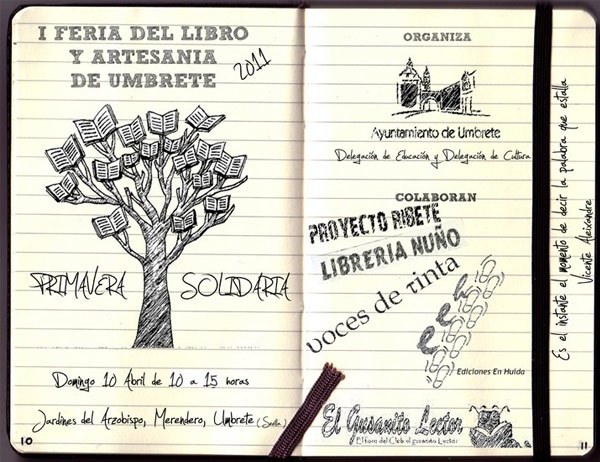 I FERIA DEL LIBRO
Y ARTESANIA
DE UMBRETE
2011
PRIMAVERA SOLIDARIA
Domingo 10 Abril de 10 a 15 horas
Jardines del Arzobispo, Merendero, Umbrete (Sevilla)
10
ORGANIZA
Ayuntamiento de Umbrete
Delegación de Educación y Delegación de Cultura
COLABORAN
PROYECTO RIBETE
LIBRERIA NUÑO
voces de tinta
eeh
Ediciones En Huida
El Gusanito Lector
El foro del Club el gusanito Lector
11
Es el instante el momento de decir la palabra que estalla
Vicente Aleixandre